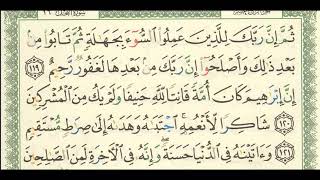 ثُمَّ إِنَّ رَبَّكَ لِلَّذِينَ عَمِلُوا۟ ٱلسُّوٓءَ بِجَهَٰلَةٍ ثُمَّ تَابُوا۟ مِنۢ
بَعْدِ ذَٰلِكَ وَأَصْلَحُوٓا۟ إِنَّ رَبَّكَ مِنۢ بَعْدِهَا لَغَفُورٌ رَّحِيمٌ ١١٩
إِنَّ إِبْرَٰهِيمَ كَانَ أُمَّةً قَانِتًا لِّلَّهِ حَنِيفًا وَلَمْ يَكُ مِنَ ٱلْمُشْرِكِينَ
شَاكِرًا لِّأَنْعُمِهِ ٱجْتَبَىٰهُ وَهَدَىٰهُ إِلَىٰ صِرَٰطٍ مُّسْتَقِيمٍ ١٢٠
وَءَاتَيْنَٰهُ فِى ٱلدُّنْيَا حَسَنَةً وَإِنَّهُۥ فِى ٱلْءَاخِرَةِ لَمِنَ ٱلصَّٰلِحِينَ ١٢١